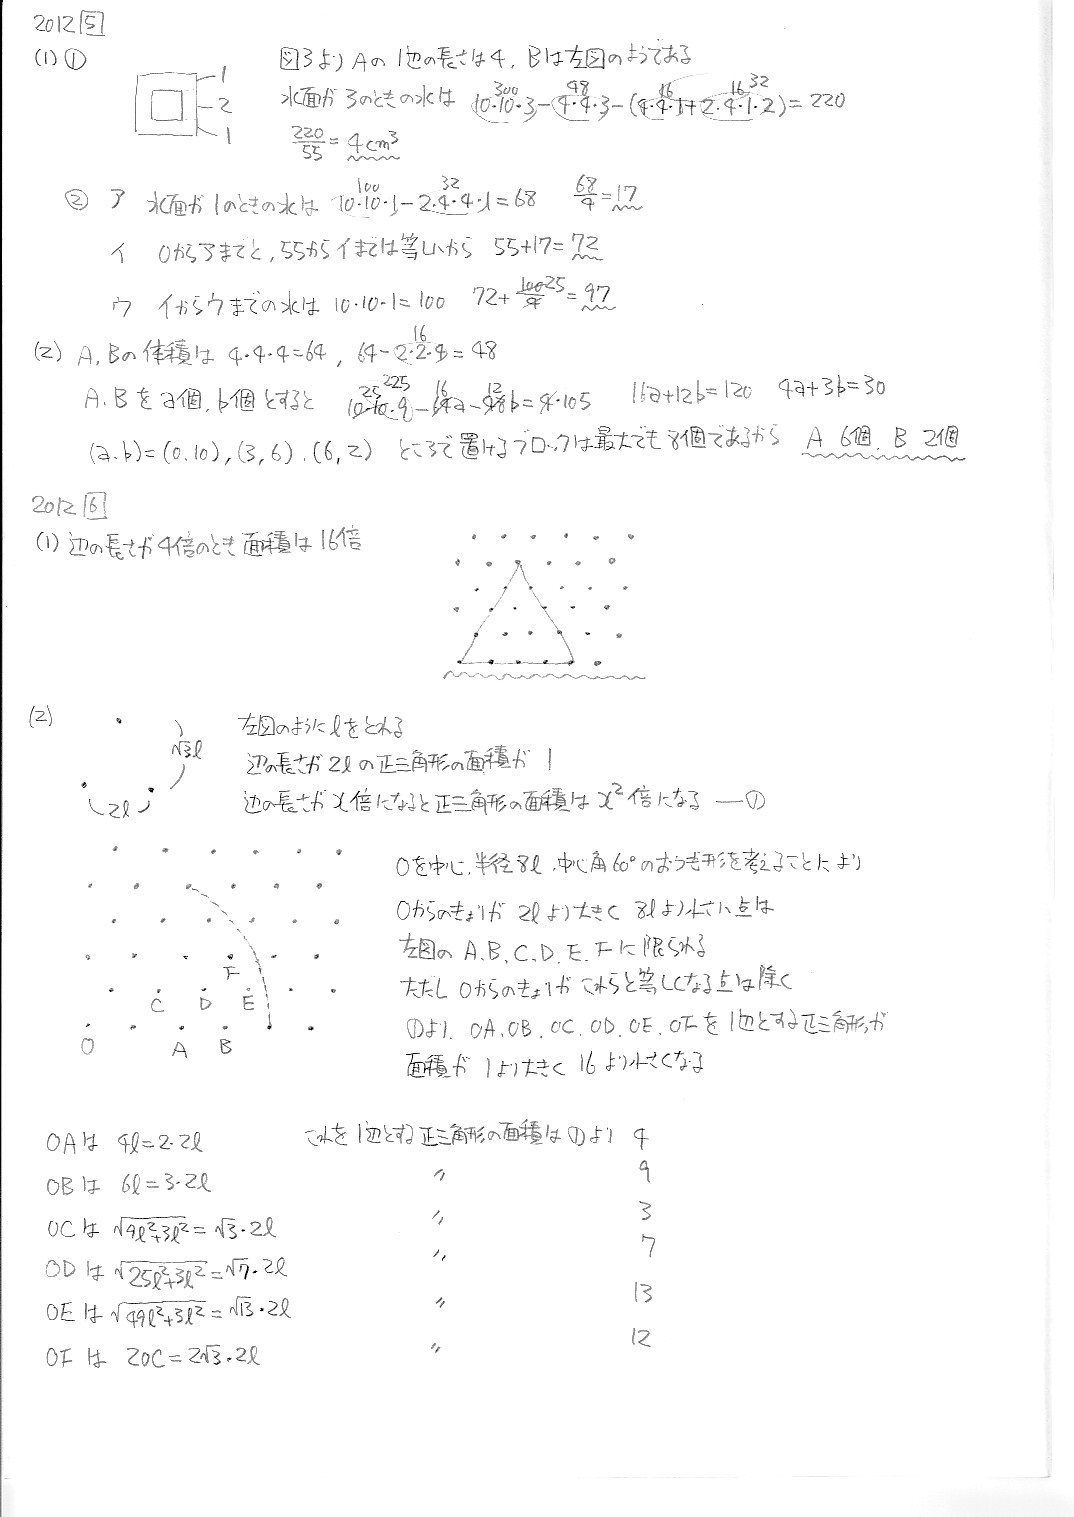 2012 5
(1) ①
1
2
1
図3より Aの1辺の長さは4, Bは左図のようである
水面が3のときの水は 10·10·3-4·4·3-(4·4·1+2·4·1·2)=220
300 48 16 16 32
220/55=4cm³
② ア 水面が1のときの水は 10·10·1-2·4·4·1=68 68/4=17
100 32
イ 0からアまでと,55からイまでは等しいから 55+17=72
ウ イからウまでの水は 10·10·1=100 72+100/4=97
25
(2) A,Bの体積は 4·4·4=64, 64-2·2·4=48
16
A.Bをa個,b個とすると 10·10·9-64a-48b=4·105 16a+12b=120 4a+3b=30
25 225 16 12
(a.b)=(0.10),(3,6).(6,2) ところで置けるブロックは最大でも8個であるから A 6個. B 2個
2012 6
(1) 辺の長さが4倍のとき面積は16倍
(2)
√3l
2l
左図のようにlをとれる
辺の長さが2lの正三角形の面積が1
辺の長さがx倍になると正三角形の面積はx²倍になる ―①
Oを中心,半径8l,中心角60°のおうぎ形を考えることにより
Oからのきょりが2lより大きく8lより小さい点は
左図のA.B.C.D.E.Fに限られる
ただしOからのきょりがこれらと等しくなる点は除く
①より. OA,OB.OC.OD.OE.OFを1辺とする正三角形が
面積が1より大きく16より小さくなる
F
C D E
O A B
OAは 4l=2·2l これを1辺とする正三角形の面積は①より 4
OBは 6l=3·2l 〃 9
OCは √9l²+3l²=√3·2l 〃 3
ODは √25l²+3l²=√7·2l 〃 7
OEは √49l²+3l²=√13·2l 〃 13
OFは 2OC=2√3·2l 〃 12